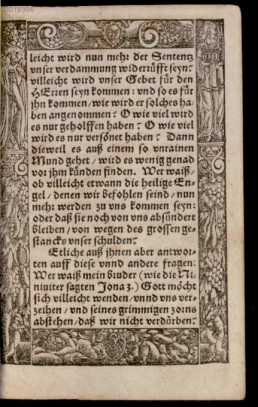 leicht wird nun mehr der Sententz
vnser verdammung widerrüfft seyn:
villeicht wird vnser Gebet für den
HErren seyn kommen: vnd so es für
jhn kommen / wie wird er solches ha-
ben angenommen? O wie viel wird
es nur geholffen haben? O wie viel
wird es nur versönet haben? Dann
dieweil es auß einem so vnrainen
Mund gehet / wird es wenig genad
vor jhm künden finden. Wer waiß /
ob villeicht etwann die heilige En-
gel / denen wir befohlen seind / nun
mehr werden zu vns kommen seyn:
oder daß sie noch von vns absündert
bleiben / von wegen des grossen ge-
stancks vnser schulden?
Etliche auß jhnen aber antwor-
ten auff diese vnnd andere fragen:
Wer waiß mein bruder (wie die Ni-
niuiter sagten Jona 3.) Gott möcht
sich villeicht wenden / vnnd vns ver-
zeihen / vnd seines grimmigen zorns
abstehen / daß wir nicht verdürben?